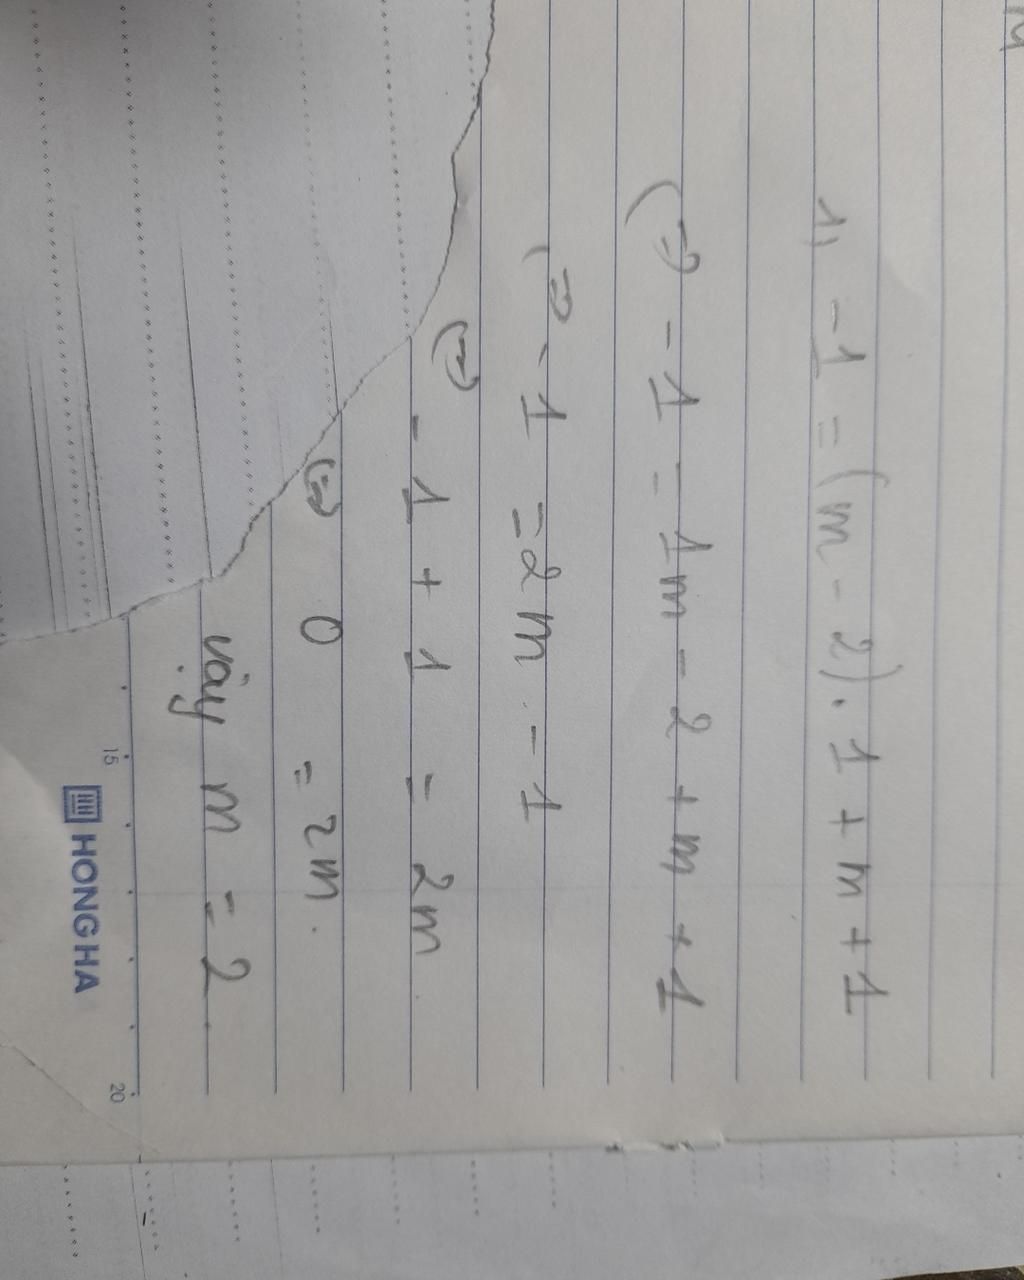 1, -1 = (m - 2). 1 + m + 1
(=) -1 = 1m - 2 + m + 1
(=) -1 = 2m - 1
(=) -1 + 1 = 2m
(=) 0 = 2m.
vậy m = 2
15 20
HONG HA